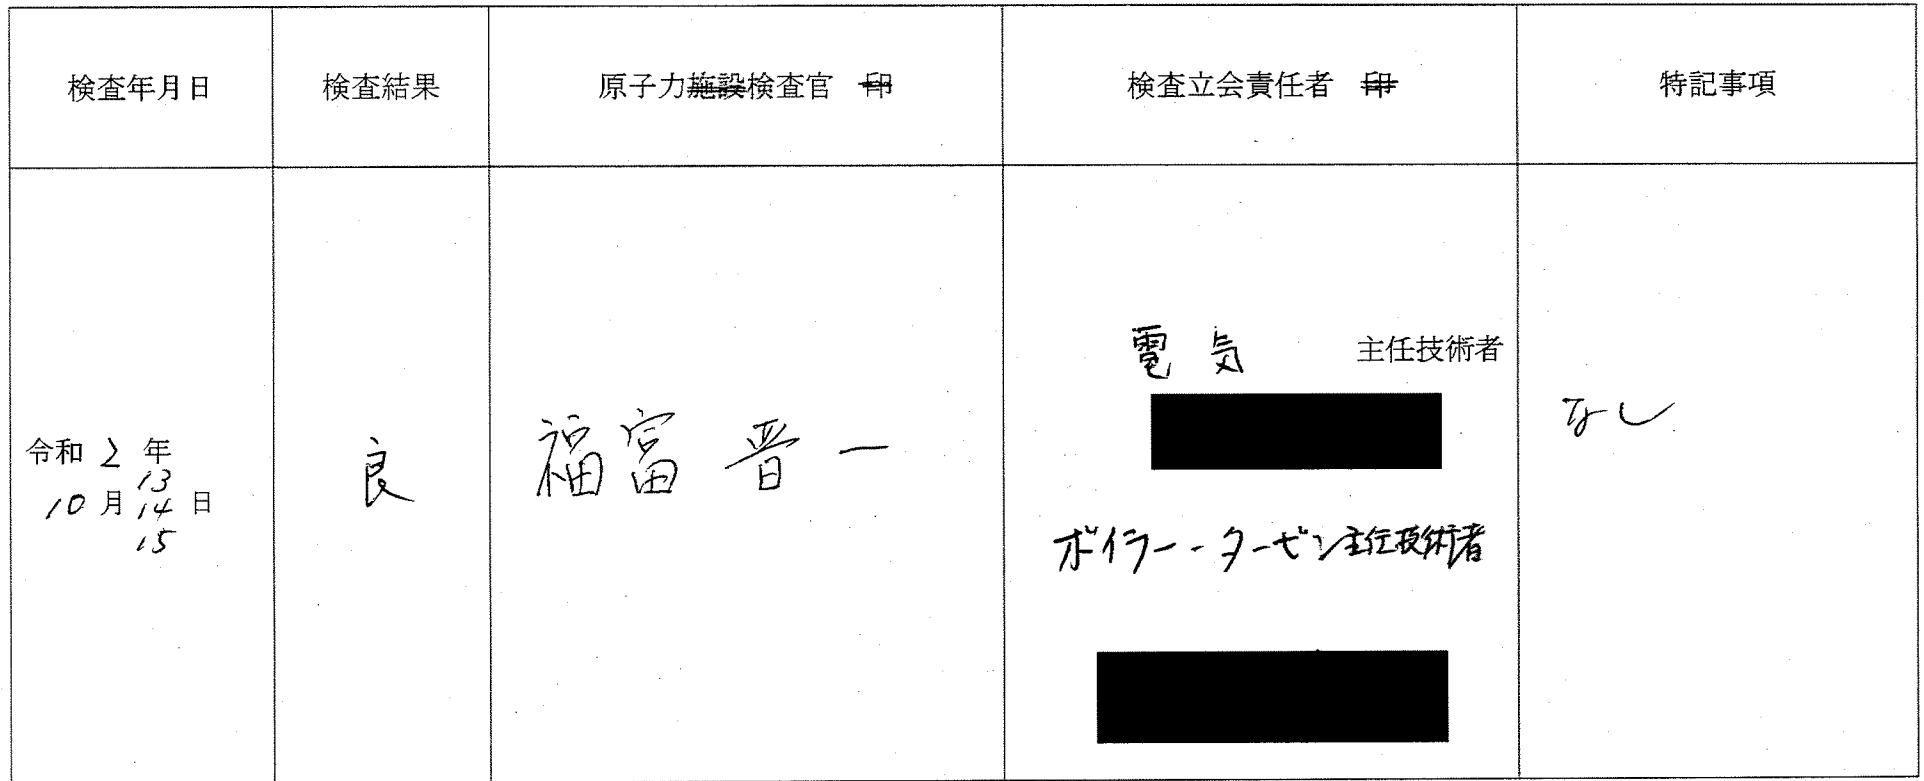 検査年月日
検査結果
原子力施設検査官 印
検査立会責任者 印
特記事項
令和 2 年
10 月 13 14 15 日
良
福富 晋一
電気 主任技術者
ボイラー・タービン主任技術者
なし